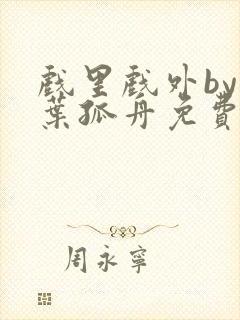 戲里戲外by
葉孤丹免費
周永寧